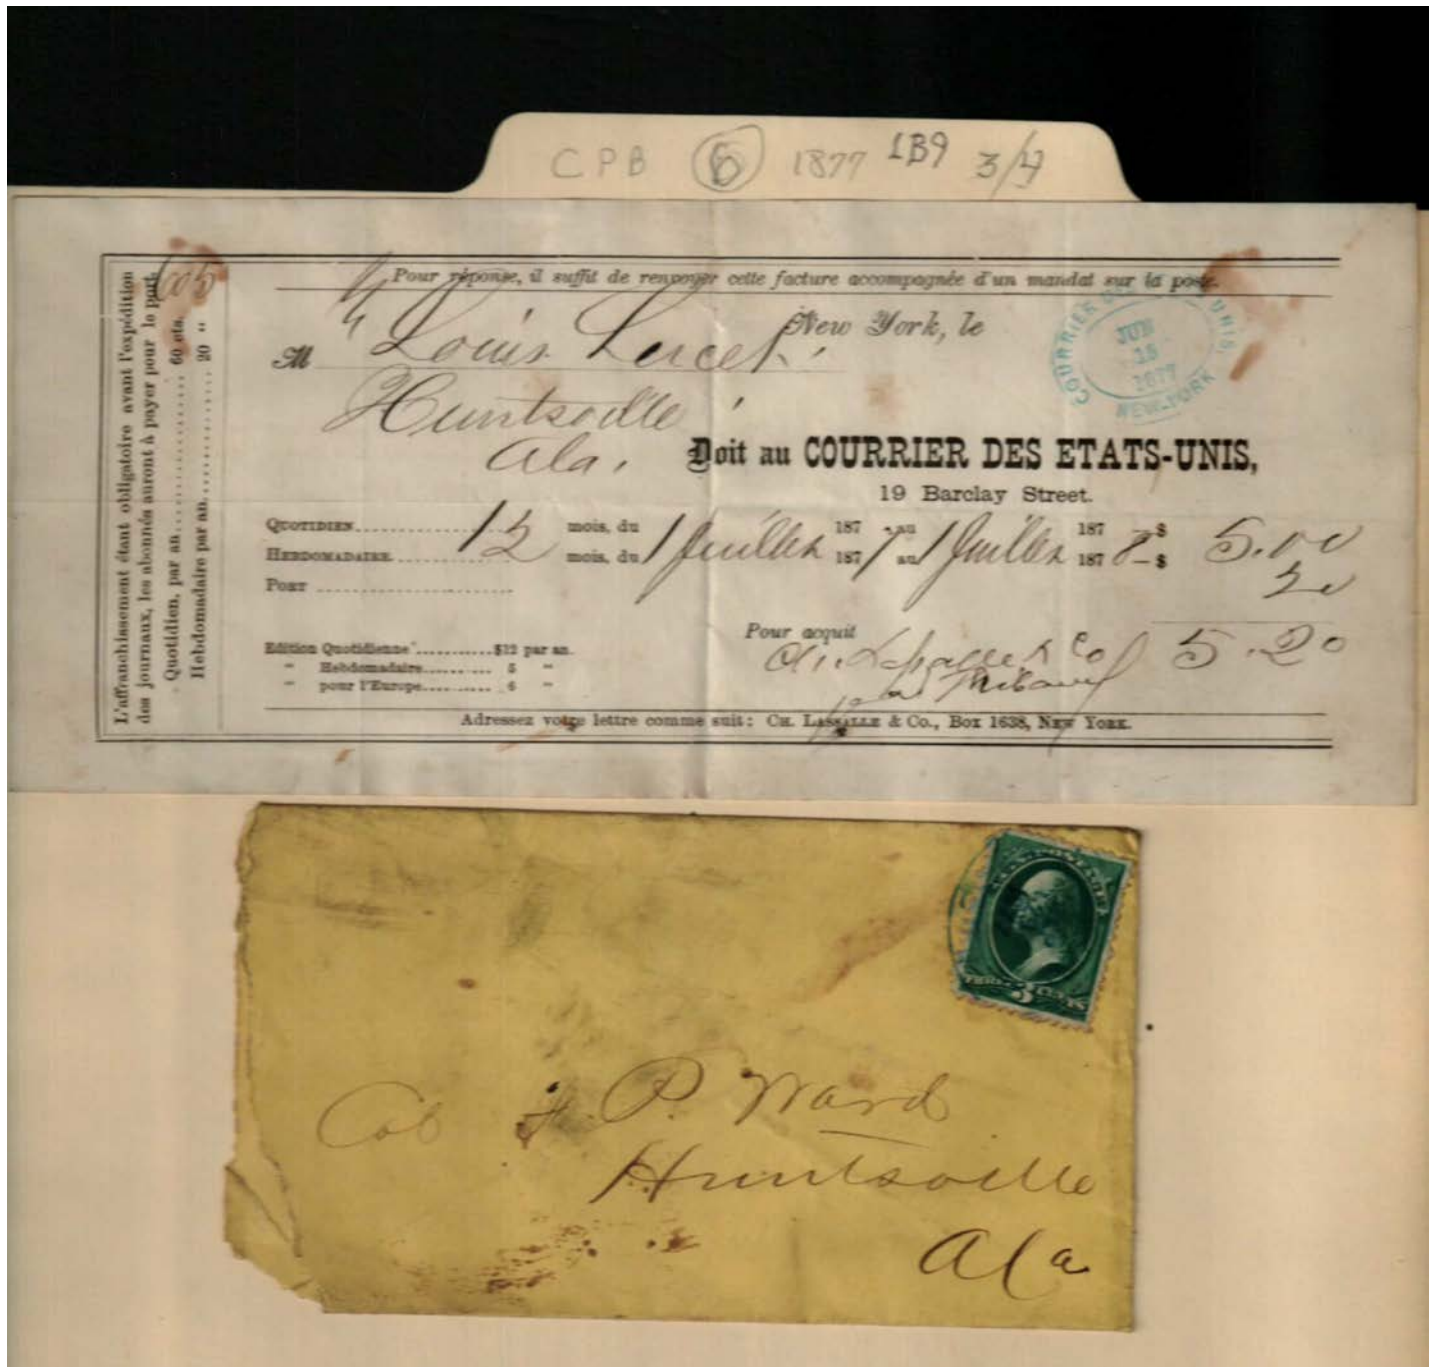 CPB 6 1877 1B9 3/4
L'affranchissement étant obligatoire avant l'expédition
des journaux, les abonnés auront à payer pour le port
Quotidien, par an........60 cts.
Hebdomadaire par an........20 "
Pour réponse, il suffit de renvoyer cette facture accompagnée d'un mandat sur la poste.
New York, le
COURRIER DES ETATS UNIS,
JUN
15
1877
NEW-YORK
M Louis
Huntsville
Ala.
Doit au COURRIER DES ETATS-UNIS,
19 Barclay Street.
QUOTIDIEN........ mois, du 187 au 187 $
HEBDOMADAIRE........ 12 mois, du 1 Juillet 1877 au 1 Juillet 1878 - $ 5.00
PORT ........ 20
Pour acquit 5.20
Ch. Lassalle & Co
Edition Quotidienne..........$12 par an.
" Hebdomadaire........ 5 "
" pour l'Europe.......... 6 "
Adressez votre lettre comme suit: CH. LASSALLE & CO., BOX 1638, NEW YORK.
THREE 3 CENTS
Col P. Ward
Huntsville
Ala